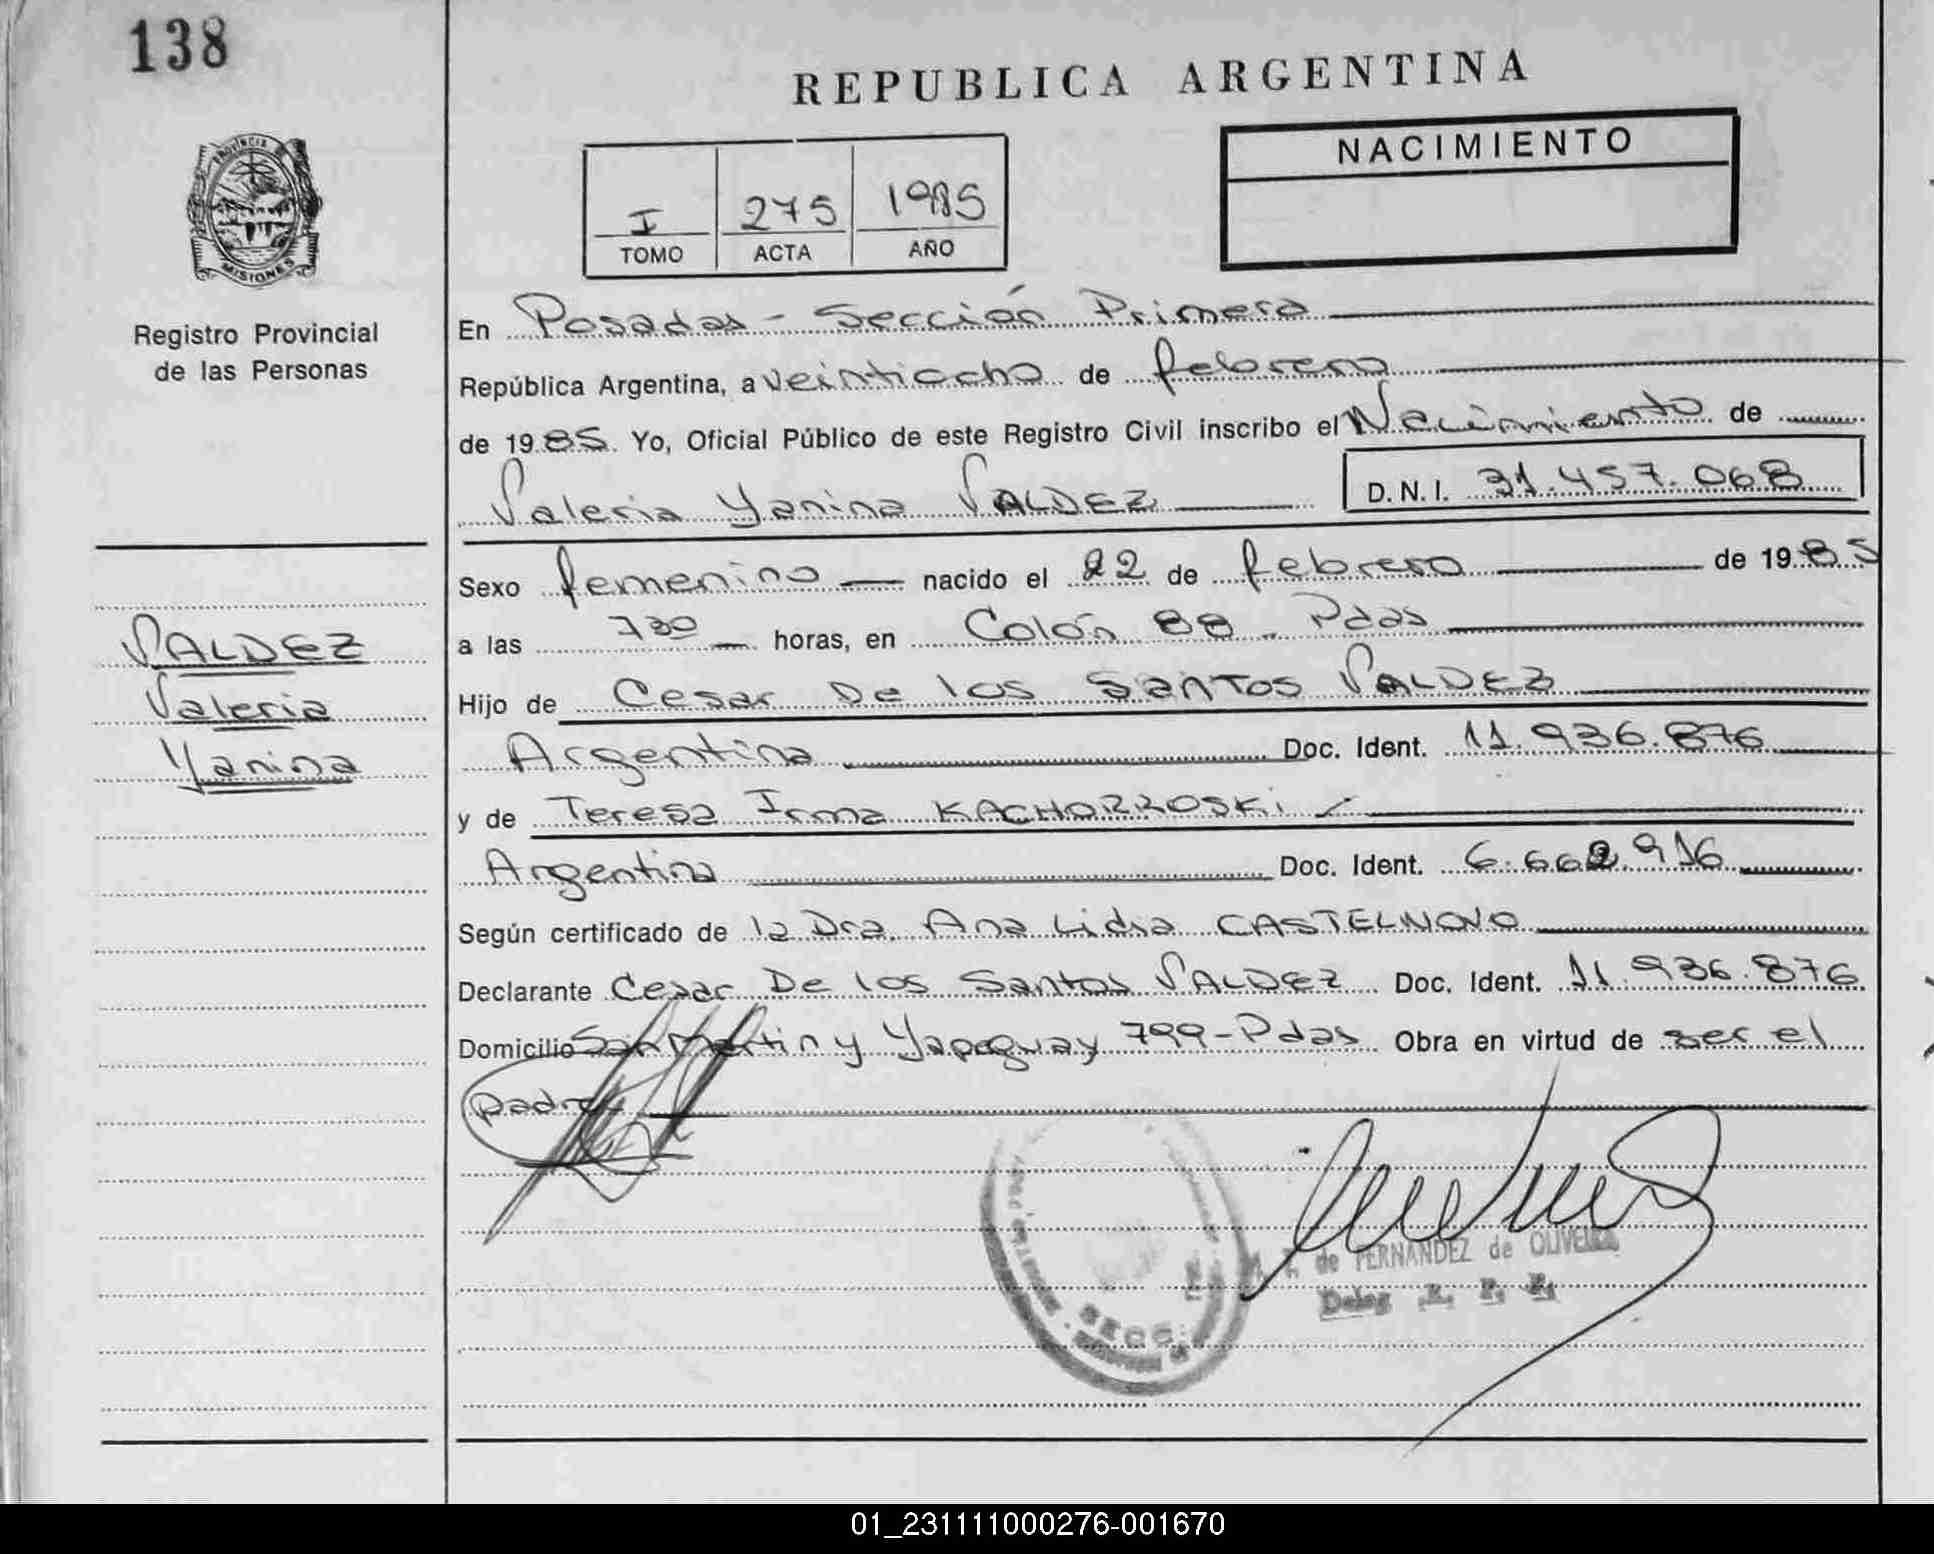 138
REPUBLICA ARGENTINA
NACIMIENTO
I 275 1985
TOMO ACTA AÑO
PROVINCIA DE
MISIONES
Registro Provincial
de las Personas
En Posadas - Sección Primera
República Argentina, a veintiocho de febrero
de 1985 Yo, Oficial Público de este Registro Civil inscribo el Nacimiento de
Valeria Yanina VALDEZ D.N.I. 31.457.068
Sexo femenino nacido el 22 de febrero de 1985
a las 730 horas, en Colón 88 - Pdas
Hijo de Cesar De los Santos VALDEZ
Argentina Doc. Ident. 11.936.876
y de Teresa Irma KACHORROSKi
Argentina Doc. Ident. 6.662.916
Según certificado de la Dra. Ana Lidia CASTELNOVO
Declarante Cesar De los Santos VALDEZ Doc. Ident. 11.936.876
Domicilio San Martin y Yapeguay 799-Pdas Obra en virtud de ser el
padre
VALDEZ
Valeria
Yanina
de FERNANDEZ de OLIVEIRA
Deleg. R. P. P.
SECC.
01_231111000276-001670